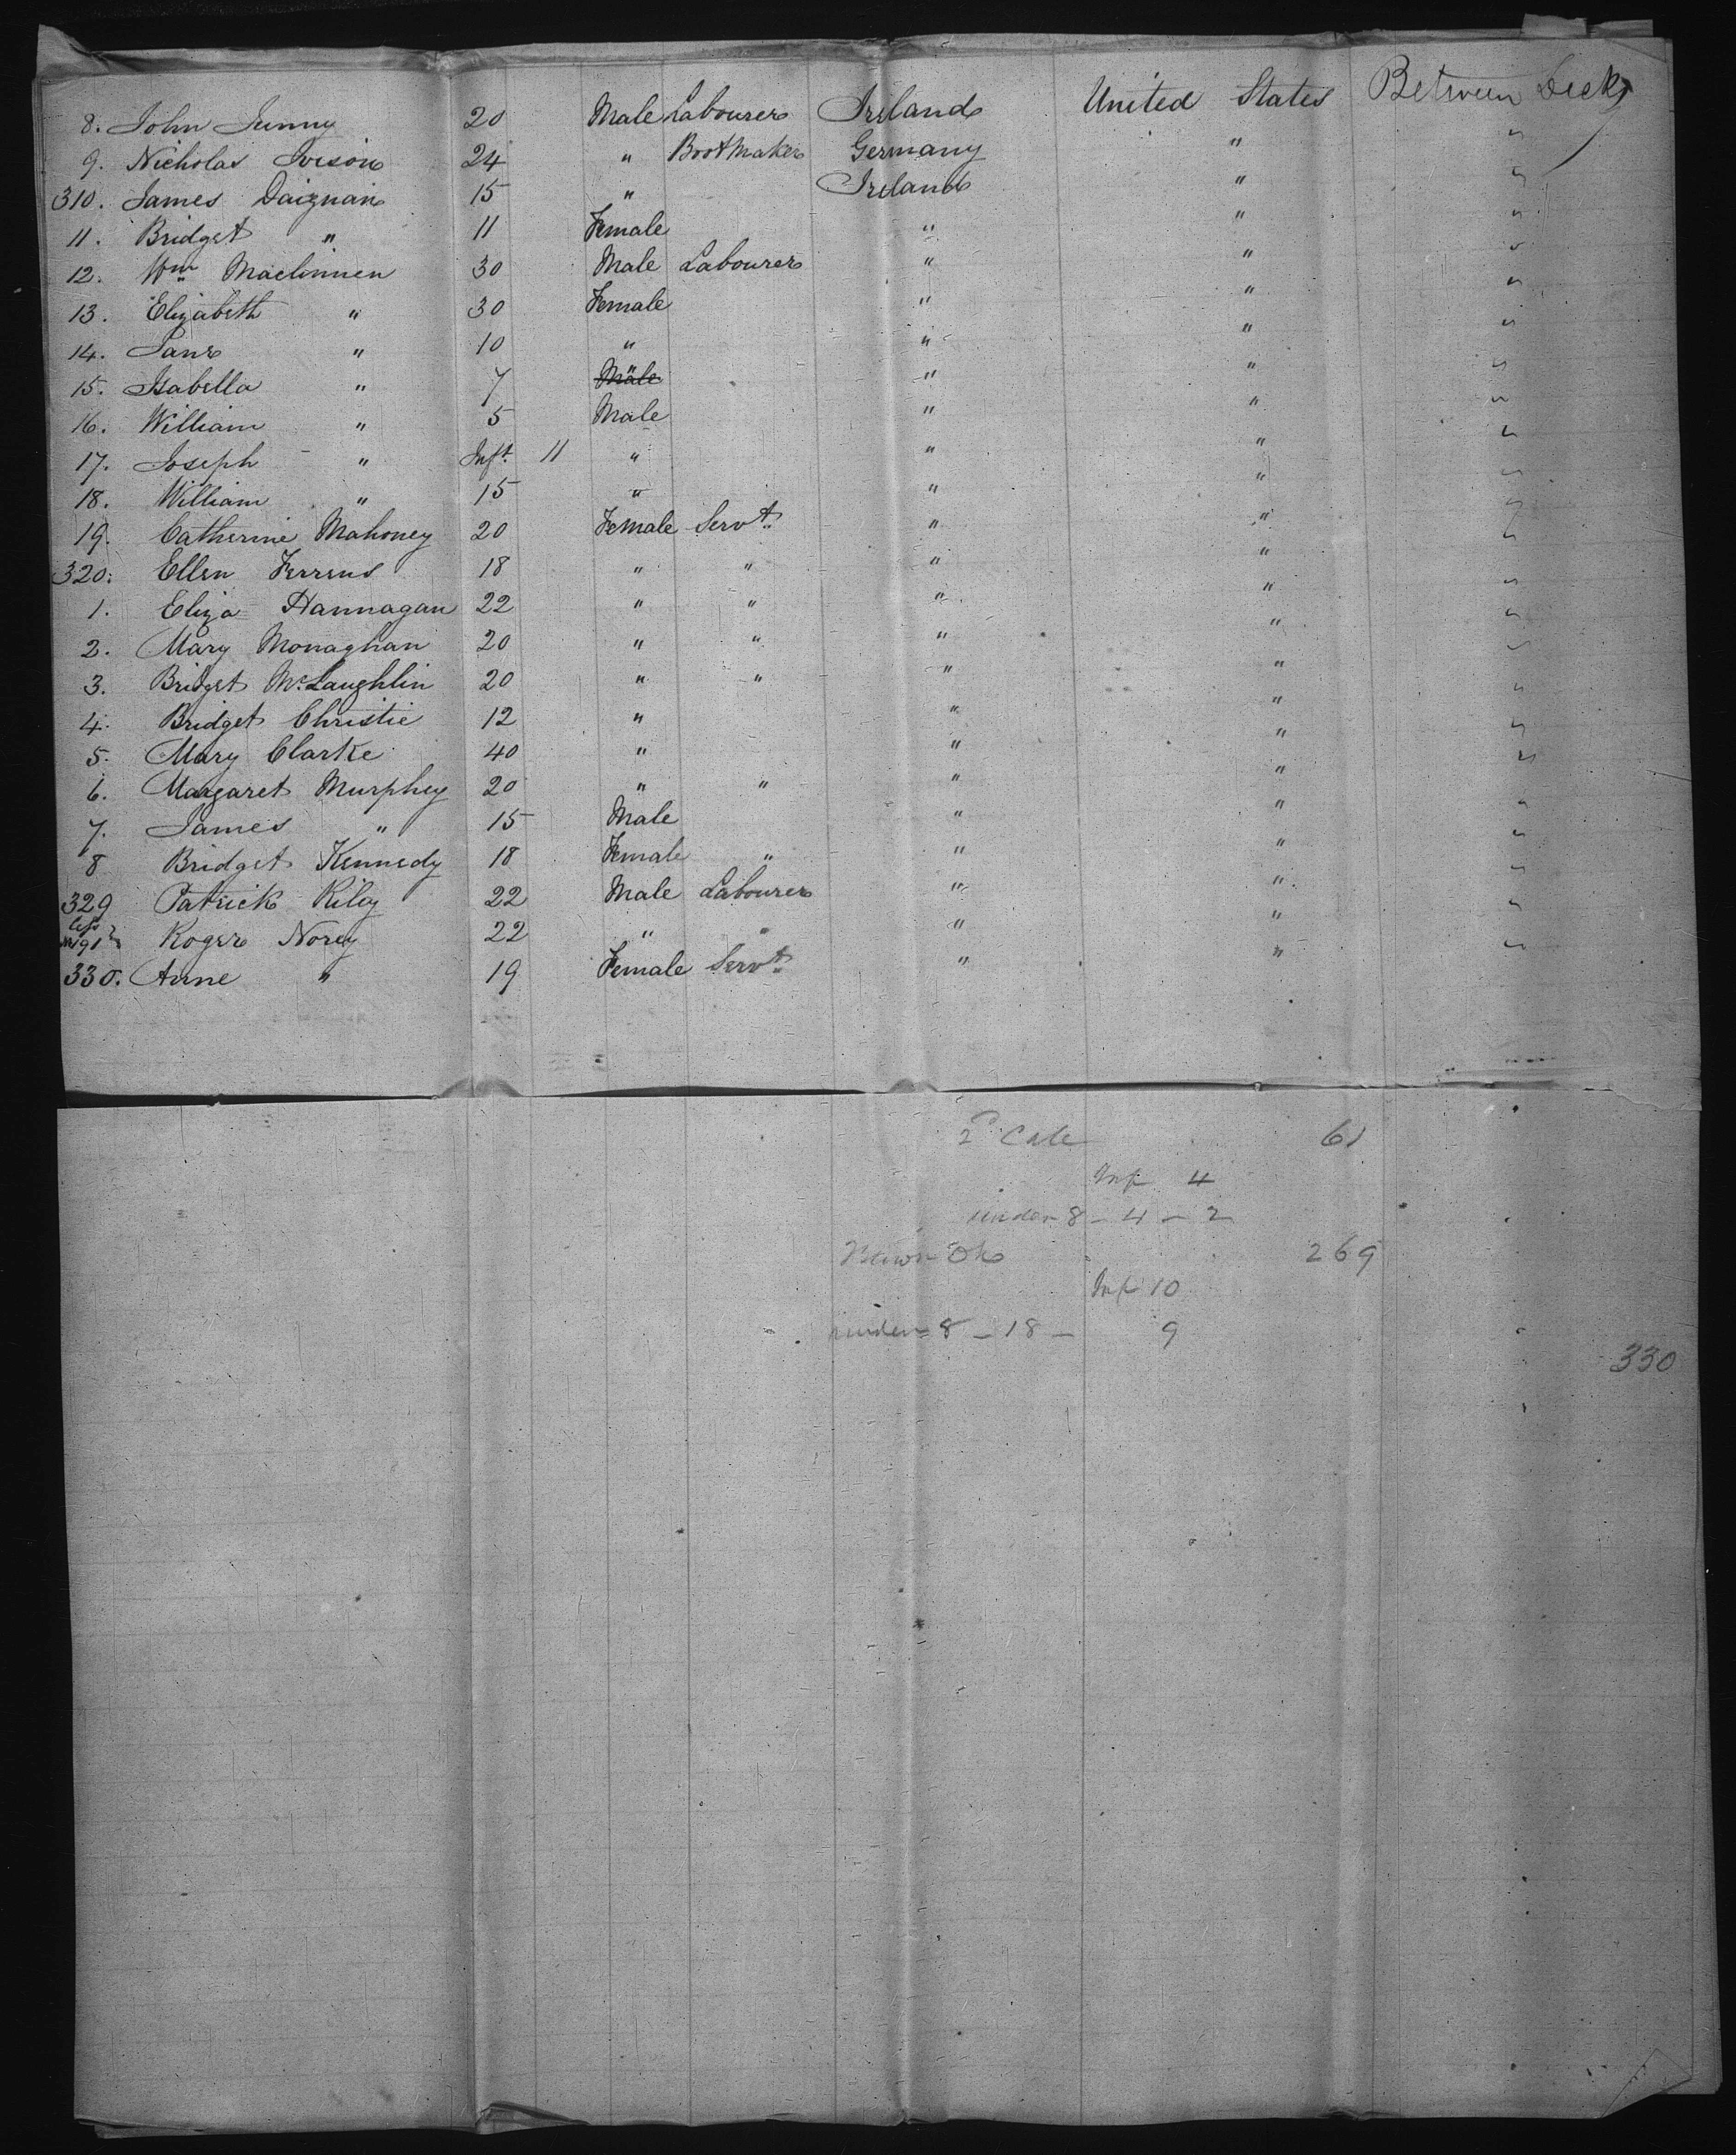 8. John Junny 20 Male Labourer Ireland United States Between Decks
9. Nicholas Iverson 24 " Bootmaker Germany " "
310. James Daignan 15 " Ireland " "
11. Bridget " 11 Female " " "
12. Wm Maclinnen 30 Male Labourer " " "
13. Elizabeth " 30 Female " " "
14. Jane " 10 " " " "
15. Isabella " 7 Male " " " "
16. William " 5 Male " " "
17. Joseph " Inft. 11 " " " "
18. William " 15 " " " "
19. Catherine Mahoney 20 Female Servt. " " "
320. Ellen Ferrens 18 " " " " "
1. Eliza Hannagan 22 " " " " "
2. Mary Monaghan 20 " " " " "
3. Bridget McLaughlin 20 " " " " "
4. Bridget Christie 12 " " " "
5. Mary Clarke 40 " " " "
6. Margaret Murphey 20 " " " " "
7. James " 15 Male " " "
8 Bridget Kennedy 18 Female " " " "
329 Patrick Riley 22 Male Labourer " " "
Roger Norey 22 " " " " "
330. Anne " 19 Female Servt. " " "
2d Cab 61
Inf 4
under 8 - 4 - 2
269
Inf 10
under 8 - 18 - 9
330